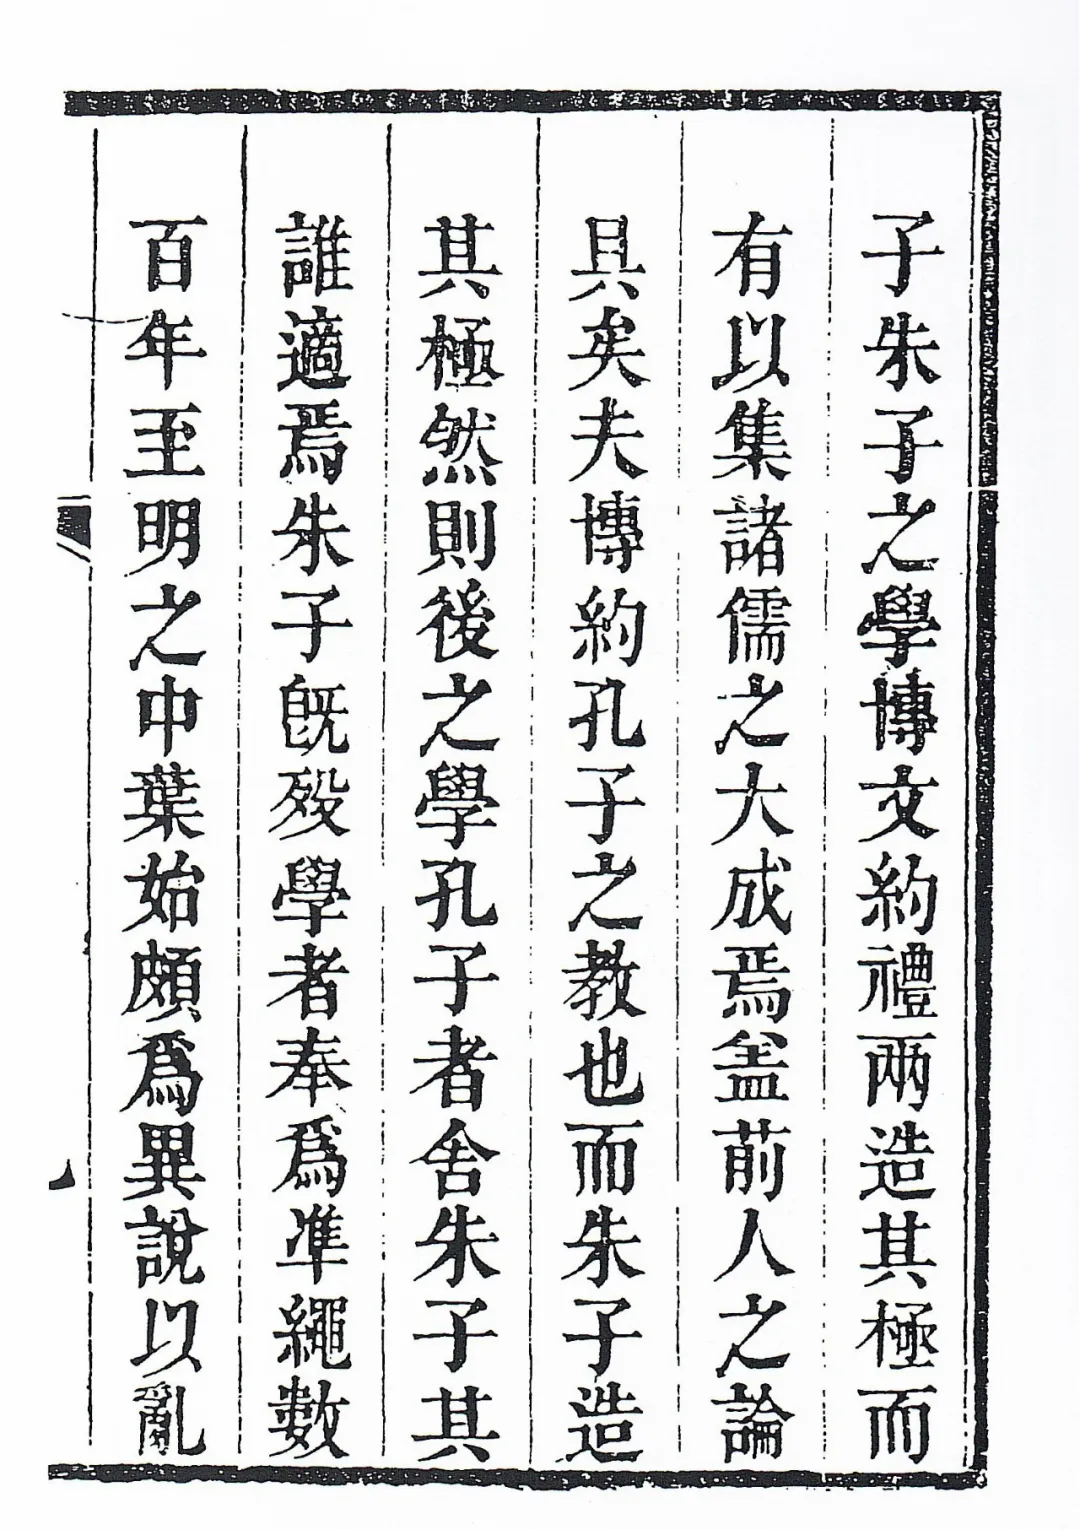 子朱子之學博文約禮兩造其極而
有以集諸儒之大成焉盖前人之論
具矣夫博約孔子之教也而朱子造
其極然則後之學孔子者舍朱子其
誰適焉朱子旣歿學者奉爲準繩數
百年至明之中葉始頗爲異說以亂